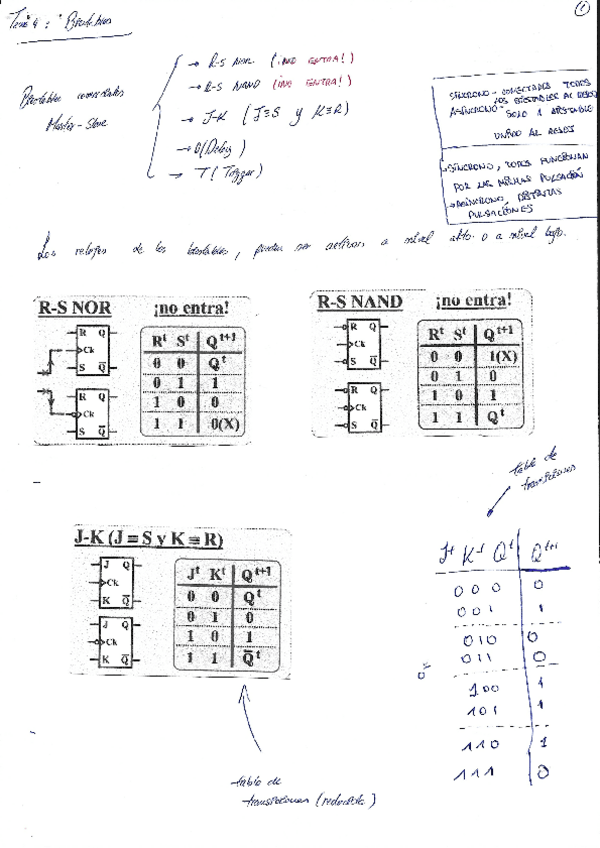 Tema 4: Biestables
1
Biestables comerciales
Master-Slave
→ R-S NOR (¡NO ENTRA!)
→ R-S NAND (¡NO ENTRA!)
→ J-K (J≡S y K≡R)
→ D (Delay)
→ T (Trigger)
SÍNCRONO - CONECTADOS TODOS
LOS BIESTABLES AL RELOJ
ASÍNCRONO - SOLO 1 BIESTABLE
UNIDO AL RELOJ
→ SÍNCRONO, TODOS FUNCIONAN
POR LAS MISMAS PULSACIÓN
→ ASÍNCRONO, DISTINTAS
PULSACIONES
Los relojes de los biestables, pueden ser activos a nivel alto o a nivel bajo.
R-S NOR ¡no entra!
R Q
Ck
S Q̅
R Q
Ck
S Q̅
Rᵗ Sᵗ Qᵗ⁺¹
0 0 Qᵗ
0 1 1
1 0 0
1 1 0(X)
R-S NAND ¡no entra!
R Q
Ck
S Q̅
R Q
Ck
S Q̅
Rᵗ Sᵗ Qᵗ⁺¹
0 0 1(X)
0 1 0
1 0 1
1 1 Qᵗ
tabla de
transiciones
J-K (J ≡ S y K ≡ R)
J Q
Ck
K Q̅
J Q
Ck
K Q̅
Jᵗ Kᵗ Qᵗ⁺¹
0 0 Qᵗ
0 1 0
1 0 1
1 1 Q̅ᵗ
Jᵗ Kᵗ Qᵗ Qᵗ⁺¹
0 0 0 0
0 0 1 1
0 1 0 0
0 1 1 0
1 0 0 1
1 0 1 1
1 1 0 1
1 1 1 0
tabla de
transiciones (reducida)